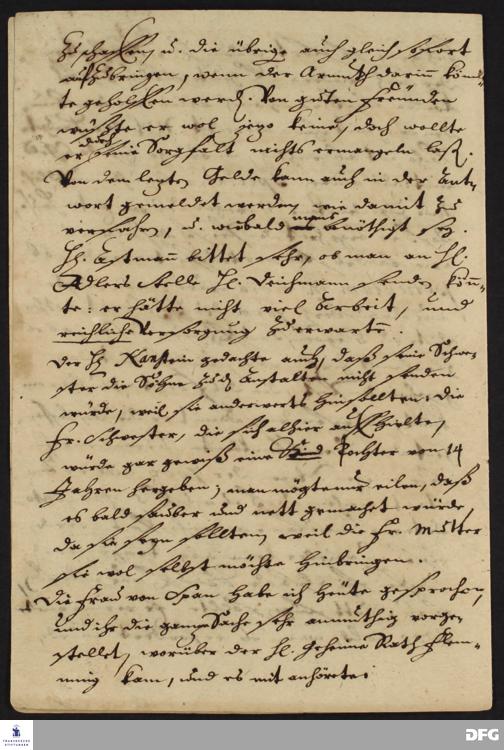 zuschaffen, u. die übrige auch gleich sofort
aufzubringen, wenn der Armuth darin könn-
te geholffen werd. Von guten Freunden
wüste er wol jezo keine, doch wollte
er doch seine Sorgfalt nichts ermangeln laß.
Von dem lezten Gelde kann auch in der Ant-
wort gemeldet werden, wie damit zu
verfahren, u. wiebald man es benöthigt sey.
H. Astmann bittet sehr, ob man an H.
Adlers stelle H. Teichmann senden könn-
te: er hätte nicht viel Arbeit, und
reichliche Versorgung zu erwarten.
Der H. Kanstein gedachte auch, daß seine Schwe-
ster die Söhne zu den Anstalten nicht senden
würde, weil sie anderwerts hinsollten: die
Fr. Schwester, die sich alhier aufhielte,
würde gar gewiß eine Tochter von 14
Jahren hergeben; man mögte nur eilen, daß
es bald sauber und nett gemachet würde,
da sie seyn sollten, weil die Fr. Mutter
sie wol selbst möchte hinbringen.
Die Frau von Span habe ich heute gesprochen,
und ihr die ganze Sache sehr anmuthig vorge-
stellet, worüber der H. Geheime Rath Flem-
ming kam, und es mit anhörete:
FRANCKESCHE STIFTUNGEN
DFG